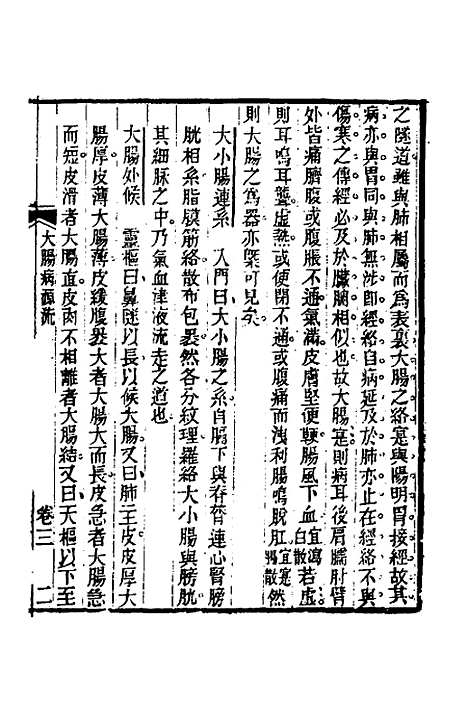 之隧道雖與肺相屬而爲表裏大腸之絡寔與陽明胃接經故其
病亦與胃同與肺無涉卽經絡自病延及於肺亦止在經絡不與
傷寒之傳經必及於臟腑相似也故大腸寔則病耳後肩臑肘臂
外皆痛臍腹或腹脹不通氣滿皮膚堅便鞕腸風下血宜瀉白散若虛
則耳鳴耳聾虛熱或便閉不通或腹痛而洩利腸鳴脫肛宜寔腸散然
則大腸之爲器亦槩可見矣
大小腸連系　入門曰大小腸之系自膈下與脊膂連心腎膀
胱相系脂膜筋絡散布包裹然各分紋理羅絡大小腸與膀胱
其細脉之中乃氣血津液流走之道也
大腸外候　靈樞曰鼻隧以長以候大腸又曰肺主皮皮厚大
腸厚皮薄大腸薄皮緩腹裹大者大腸大而長皮急者大腸急
而短皮滑者大腸直皮肉不相離者大腸結又曰天樞以下至
大腸病源流　卷三　二